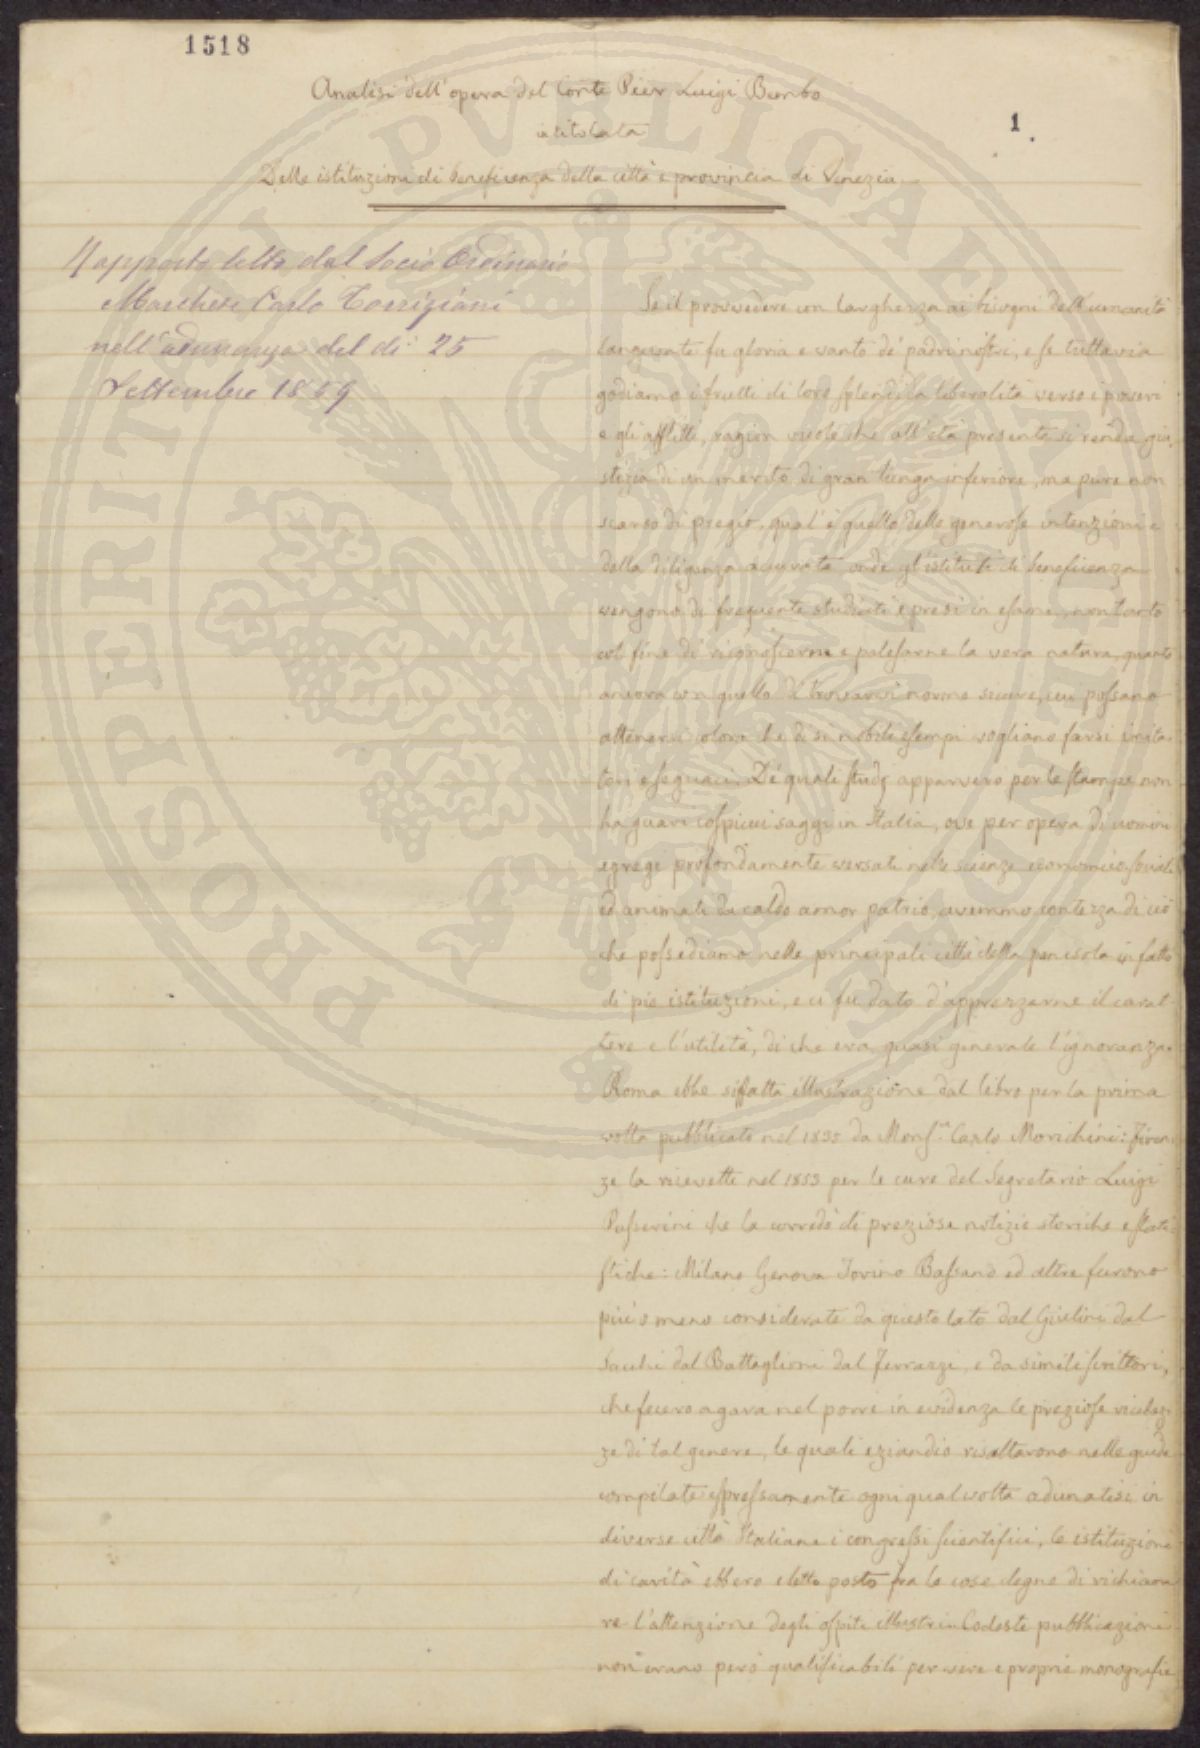 1518
Analisi dell' opera del Conte Pier Luigi Bembo
intitolata
1
Delle istituzioni di beneficenza della città e provincia di Venezia
Rapporto letto dal Socio Ordinario
Marchese Carlo Torrigiani
nell' adunanza del dì 25
Settembre 1859
Se il provvedere con larghezza ai bisogni dell' umanità
languente fu gloria e vanto de' padri nostri, e se tuttavia
godiamo i frutti di loro splendida liberalità verso i poveri
e gli afflitti, ragion vuole che all' età presente si renda giu
stizia di un merito di gran lunga inferiore, ma pure non
scarso di pregio, qual' è quello delle generose intenzioni e
della diligenza accurata, onde gl' istituti di beneficenza
vengono di frequente studiati e presi in esame, non tanto
col fine di riconoscerne e palesarne la vera natura, quanto
ancora con quello di trovarvi norme sicure, cui possano
attenersi coloro che di sì nobili esempi vogliano farsi imita
tori e seguaci. De' quali studj apparvero per le stampe non
ha guari cospicui saggi in Italia, ove per opera di uomini
egregi profondamente versati nelle scienze economico sociali
ed animati da caldo amor patrio, avemmo contezza di ciò
che possediamo nelle principali città della penisola in fatto
di pie istituzioni, e ci fu dato d' apprezzarne il carat
tere e l' utilità, di che era quasi generale l' ignoranza.
Roma ebbe siffatta illustrazione dal libro per la prima
volta pubblicato nel 1835 da Mons.r Carlo Morichini: Firen
ze la ricevette nel 1853 per le cure del Segretario Luigi
Passerini che la corredò di preziose notizie storiche e stati
stiche: Milano Genova Torino Bassano ed altre furono
più o meno considerate da questo lato dal Giulini dal
Sacchi dal Battaglioni dal Ferrazzi, e da simili scrittori,
che fecero a gara nel porre in evidenza le preziose ricchez
ze di tal genere, le quali eziandio risaltarono nelle guide
compilate espressamente ogni qual volta adunatisi in
diverse città Italiane i congressi scientifici, le istituzioni
di carità ebbero eletto posto fra le cose degne di richiama
re l' attenzione degli ospiti illustri. Codeste pubblicazioni
non erano però qualificabili per vere e proprie monografie